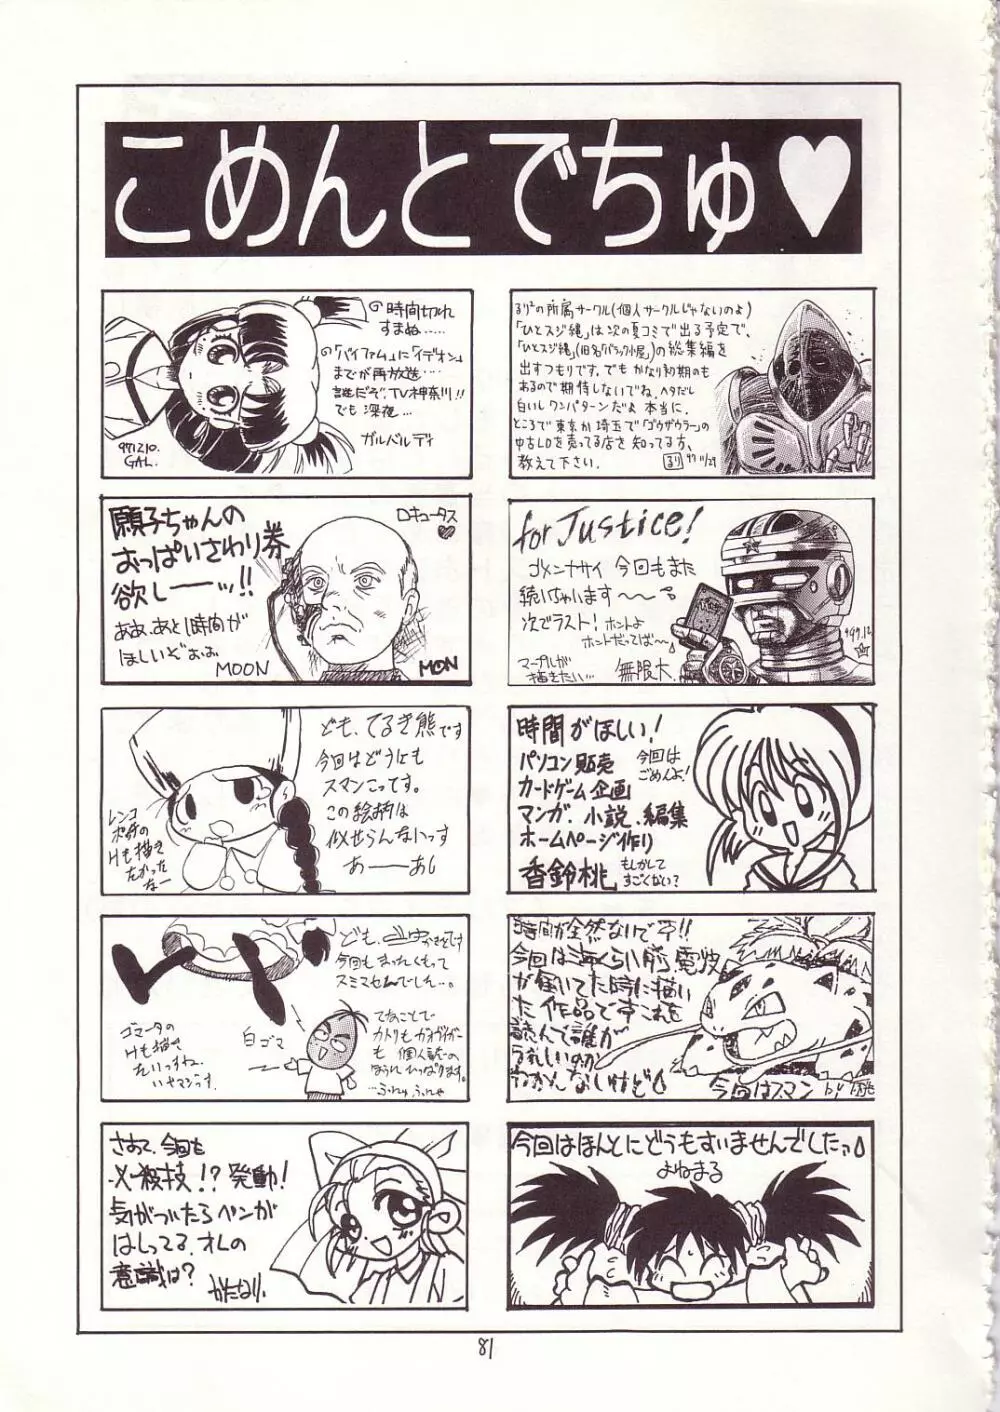 こめんとでちゅ♥
◎時間切れ
すまぬ……
◎「バイファム」に「イデオン」
までが再放送…
誰だぞ、TV神奈川!!
でも深夜…
ガルベルディ
GAL.
るり²の所属サークル(個人サークルじゃないのよ)
「ひとスジ縄」は次の夏コミで出る予定で、
「ひとスジ縄」(旧名「バラック小屋」)の総集編を
出すつもりです。でもかなり初期のも
あるので期待しないでね。ヘタだし
白いしワンパターンだよ本当に。
ところで東京か埼玉で「ゴウザウラー」の
中古LDを売ってる店を知ってる方、
教えて下さい。
るり '97 11/29
願子ちゃんの
おっぱいさわり券
欲しーーッ!!
ああ、あと1時間が
ほしいぞぉぉ
MOON
ロキュータス
♥
MON
for Justice!
ゴメンナサイ 今回もまた
続いちゃいます〜〜
次でラスト! ホントよ
ホントだってば〜
マーブルが
描きたい…
無限大
ども、てるき熊です
今回はどうにも
スマンこってす。
この絵柄は
似せらんないっす
あーーあし
レンコ
Hも描き
たかった
なー
時間がほしい!
パソコン販売
カードゲーム企画
マンガ、小説、編集
ホームページ作り
香鈴桃
今回は
ごめんよ!
もしかして
すごくない?
今回もまったくもって
スミマセんでしん…。
ゴマータの
Hも描き
たいっすね
いやマジっす。
白ゴマ
てなことで
カトリもガオガイガー
も個人誌の
ほうれひっぱります。
…ふんゅふんゃ
時間が全然ないです!!
今回は海くらい前、電波
が届いてた時に描い
た作品ですこれを
読んで誰が
うれしいのか
わかんないけど
今回はスマン
by
さぁて、今回も
必殺技!?発動!
気がついたらペンが
はしってる、オレの
意識は?
かたなり
今回はほんとにどうもすいませんでしたっ
よねまる
81